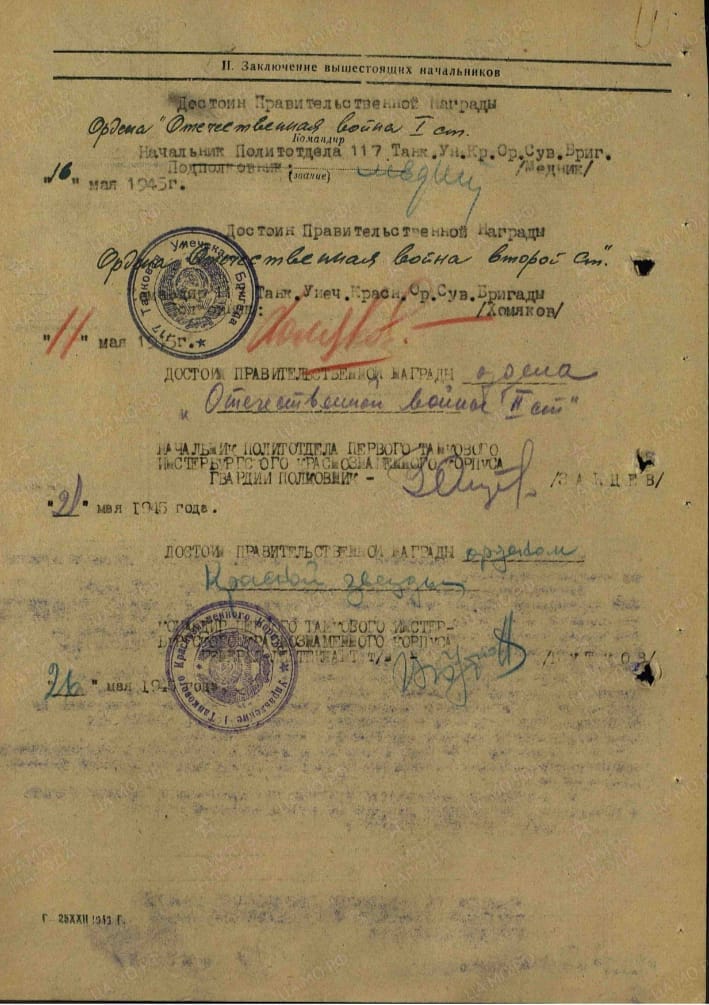 II. Заключение вышестоящих начальников
Достоин Правительственной Награды
Ордена "Отечественная война I ст.
Командир
Начальник Политотдела 117 Танк.Ун.Кр.Ор.Сув.Бриг.
Подполковник: /Медник/
(звание)
"16" мая 1945г.
Достоин Правительственной Награды
Ордена "Отечественная война второй ст".
Танк.Унеч.Красн.Ор.Сув.Бригады
/Хомяков/
"11" мая 1945г.
117 Танковая Унечская Бригада
ДОСТОИН ПРАВИТЕЛЬСТВЕННОЙ НАГРАДЫ ордена
"Отечественной войной II ст"
НАЧАЛЬНИК ПОЛИТОТДЕЛА ПЕРВОГО ТАНКОВОГО
ИНСТЕРБУРГСКОГО КРАСНОЗНАМЕННОГО КОРПУСА
ГВАРДИИ ПОЛКОВНИК - /ЗАЙЦЕВ/
"21" мая 1945 года.
ДОСТОИН ПРАВИТЕЛЬСТВЕННОЙ НАГРАДЫ орденом
Красной звезды
КОМАНДИР ПЕРВОГО ТАНКОВОГО ИНСТЕР-
БУРГСКОГО КРАСНОЗНАМЕННОГО КОРПУСА
Т/В - /БУТКОВ/
26 " мая 1945 года.
Управление 1 Танкового Краснознаменного Корпуса
Г